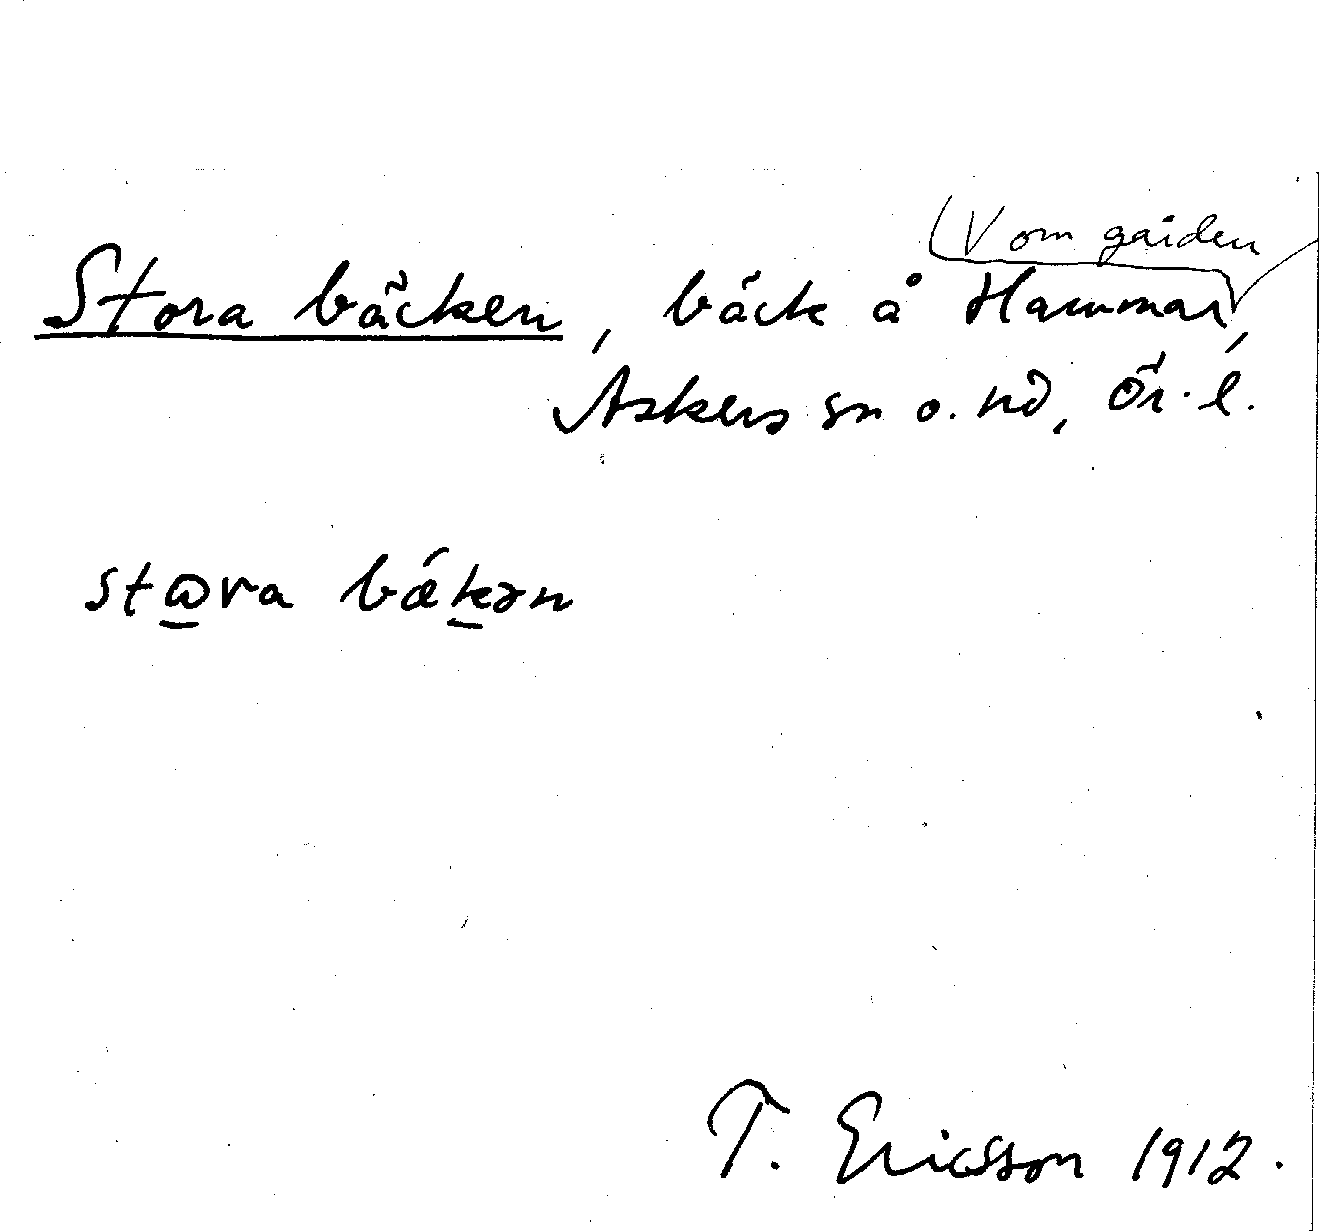 V om gården
Stora bäcken, bäck å Hammar,
Askers sn o. hd, Ör. l.
stωra bǽkən
T. Ericsson 1912.